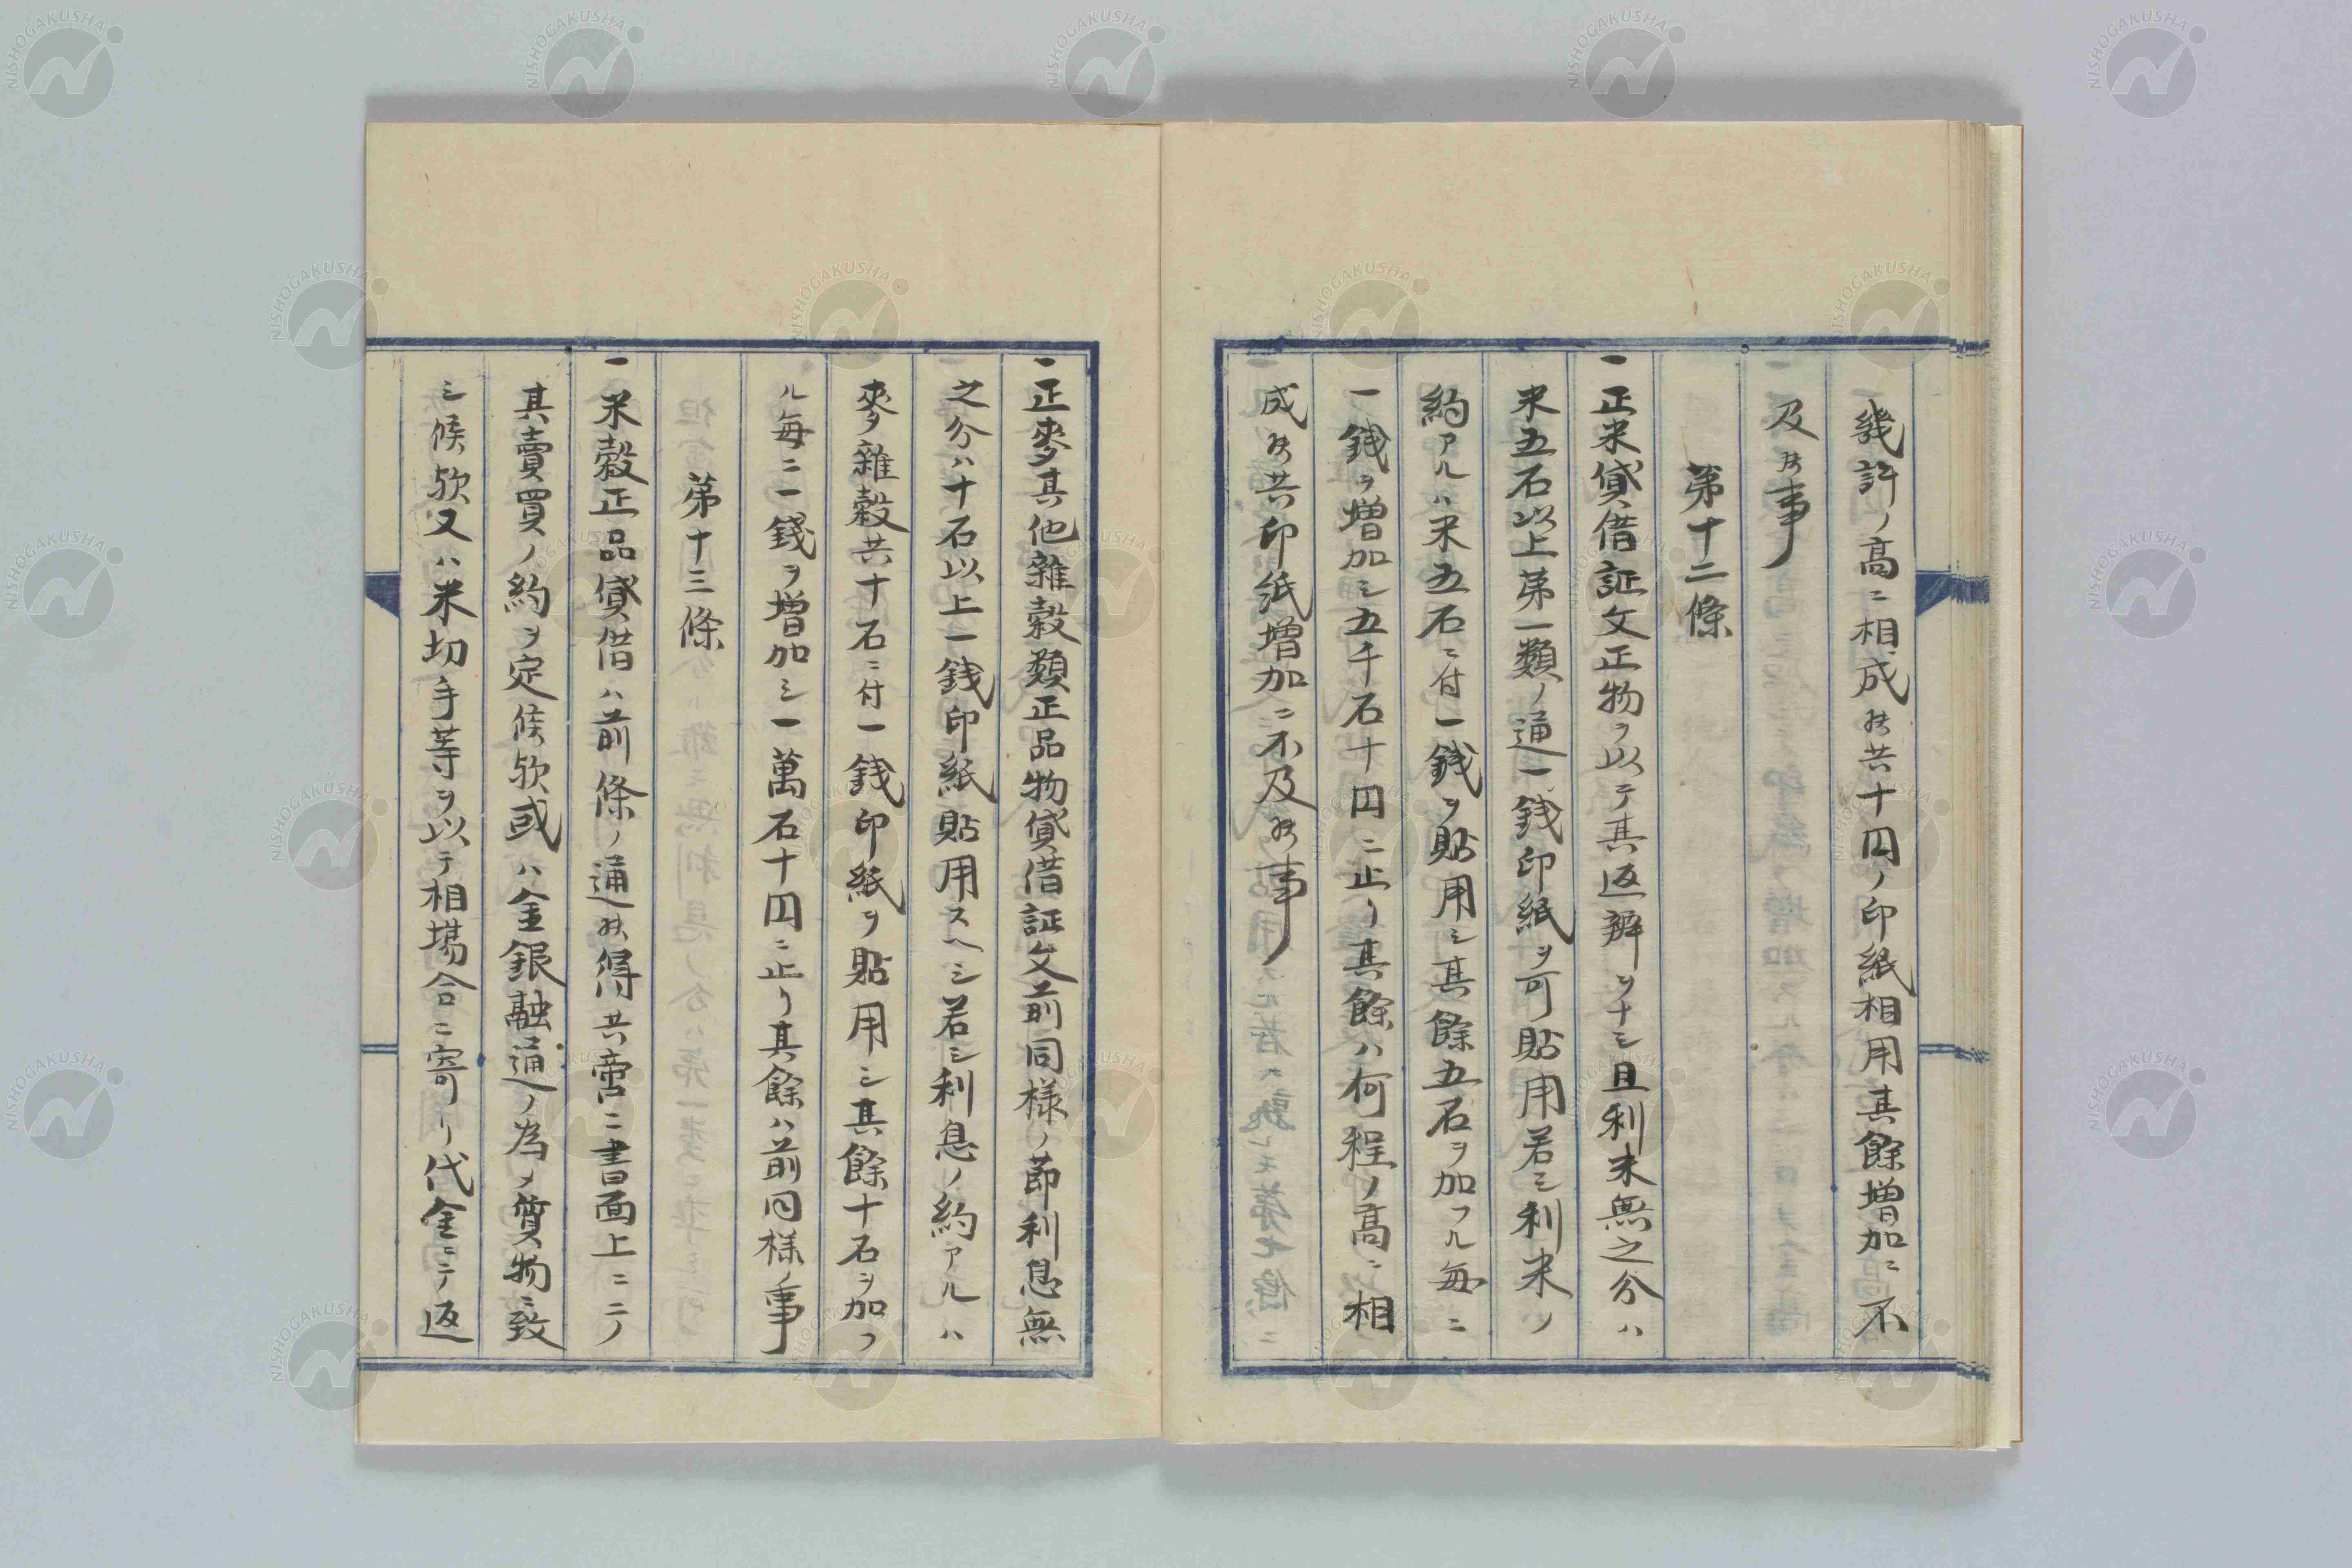 幾許ノ高ニ相成候共十円ノ印紙相用其餘増加ニ不
及候事
第十二條
一正米貸借証文正物ヲ以テ其返辨ヲナシ且利米無之分ハ
米五石以上第一類ノ通一銭印紙ヲ可貼用若シ利米ノ
約アルハ米五石ニ付一銭ヲ貼用シ其餘五石ヲ加フル毎ニ
一銭ヲ増加シ五千石十円ニ止リ其餘ハ何程ノ高ニ相
成候共印紙増加ニ不及候事
一正麥其他雜穀類正品物貸借証文前同様ノ節利息無
之分ハ十石以上一銭印紙貼用スヘシ若シ利息ノ約アルハ
麥雜穀共十石ニ付一銭印紙ヲ貼用シ其餘十石ヲ加フ
ル毎ニ一錢ヲ増加シ一萬石十円ニ止リ其餘ハ前同様ノ事
第十三條
一米穀正品貸借ハ前條ノ通候得共啻ニ書面上ニ而ノ
其賣買ノ約ヲ定候欤或ハ金銀融通ノ為メ質物ニ致
シ候欤又ハ米切手等ヲ以テ相場合ニ寄リ代金ニテ返
NISHOGAKUSHA